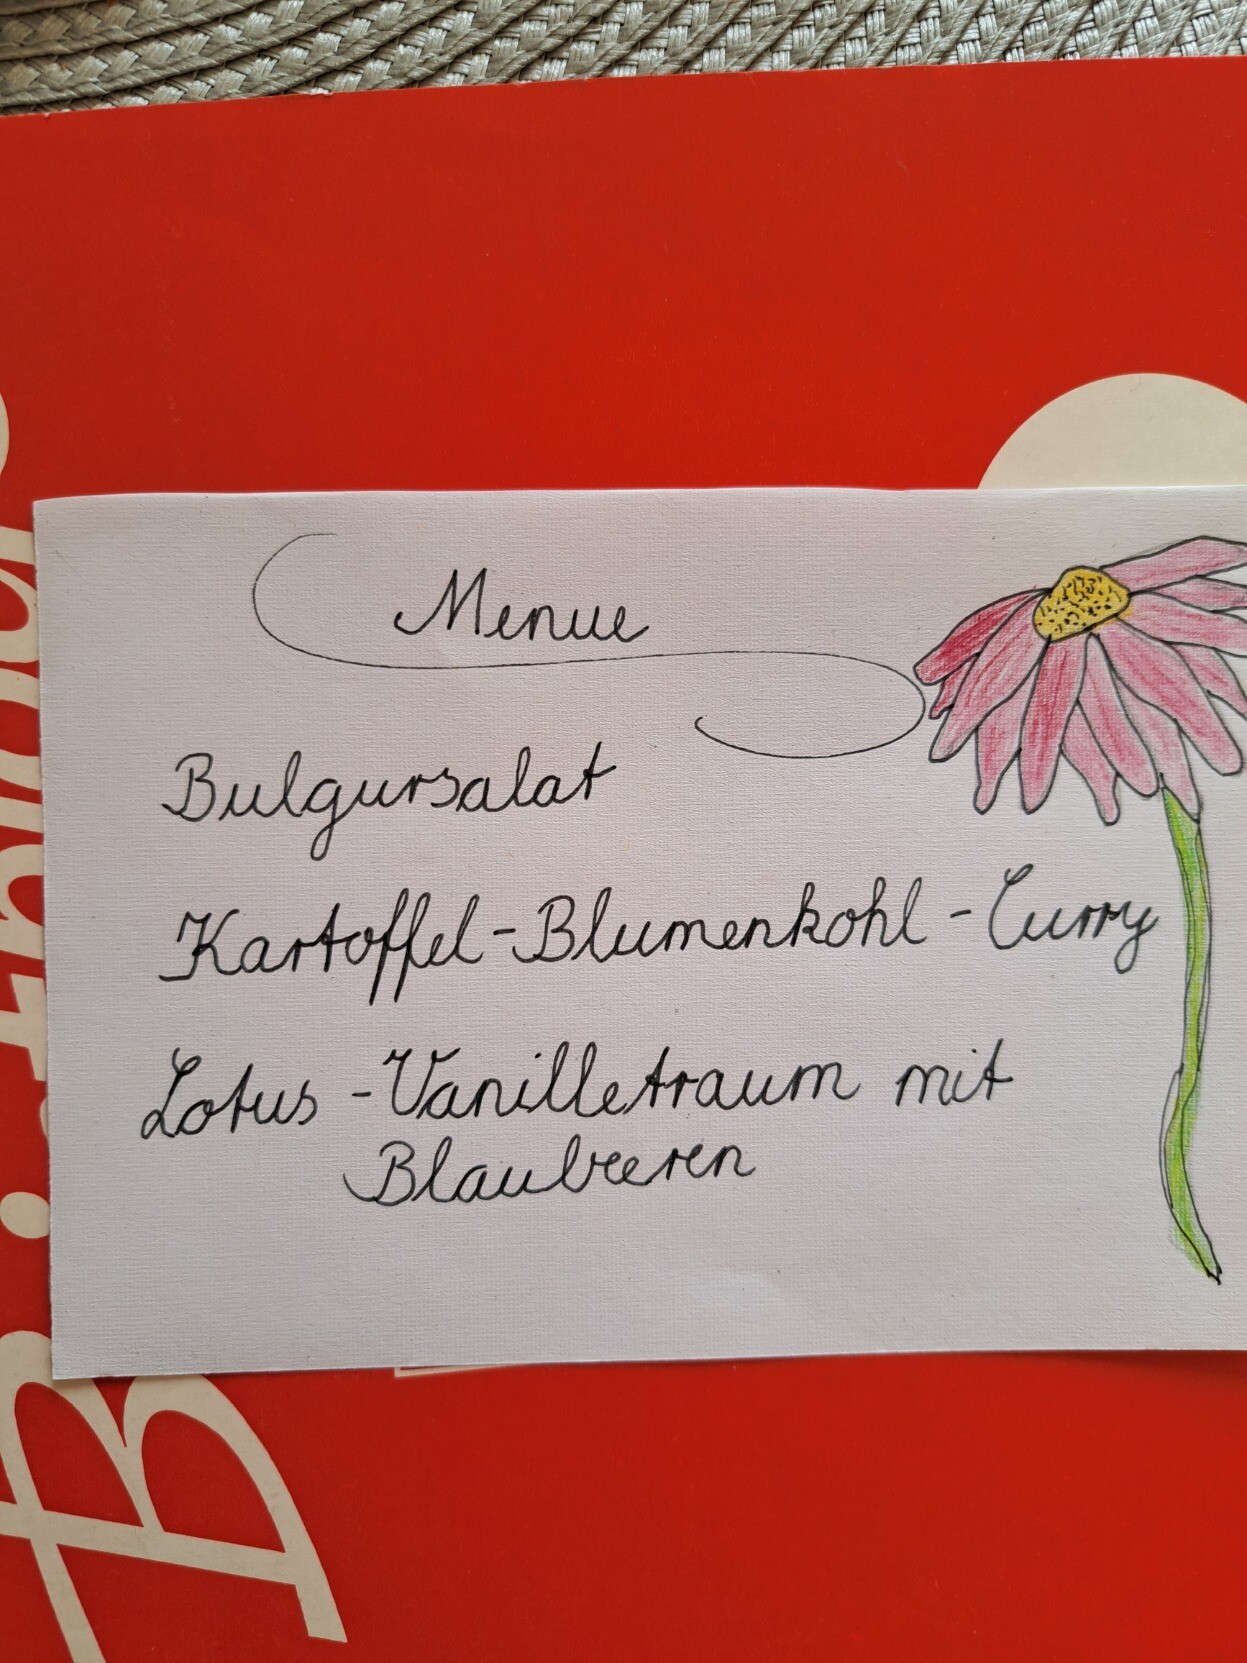 Menue
Bulgursalat
Kartoffel-Blumenkohl-Curry
Lotus-Vanilletraum mit
Blaubeeren